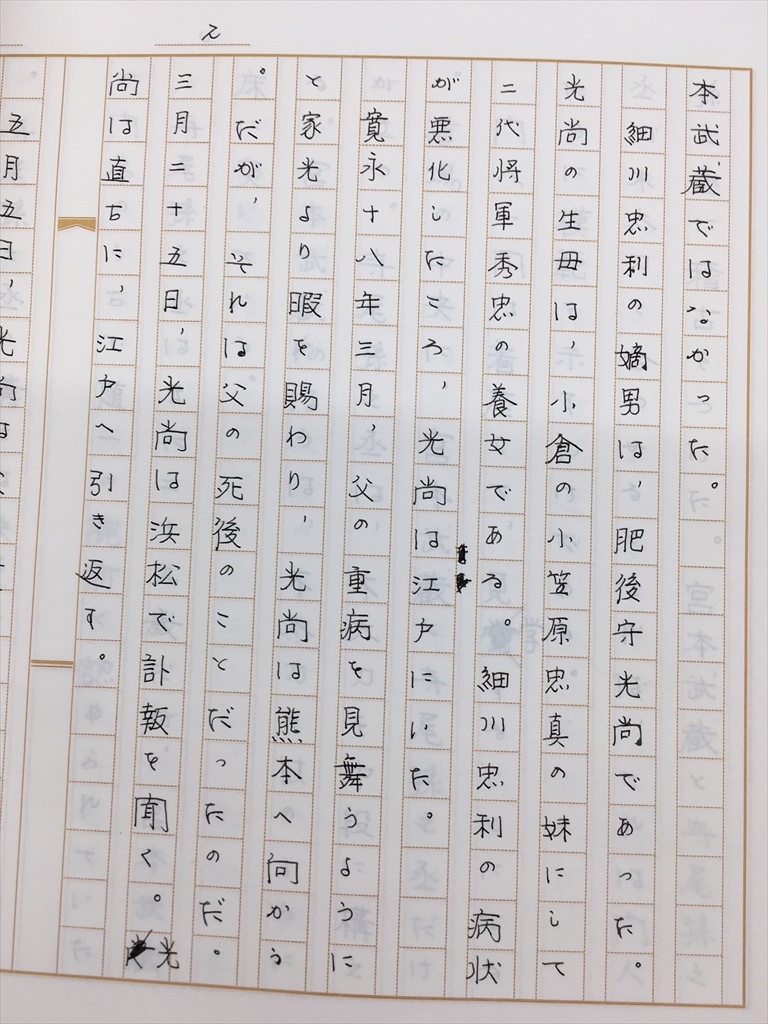 え
本武蔵ではなかった。
細川忠利の嫡男は、肥後守光尚であった。
光尚の生母は、小倉の小笠原忠真の妹にして
二代将軍秀忠の養女である。細川忠利の病状
が悪化したころ、光尚は江戸にいた。
寛永十八年三月、父の重病を見舞うように
と家光より暇を賜わり、光尚は熊本へ向かう
。だが、それは父の死後のことだったのだ。
三月二十五日、光尚は浜松で訃報を聞く。光
尚は直ちに、江戸へ引き返す。
五月五日、光尚は